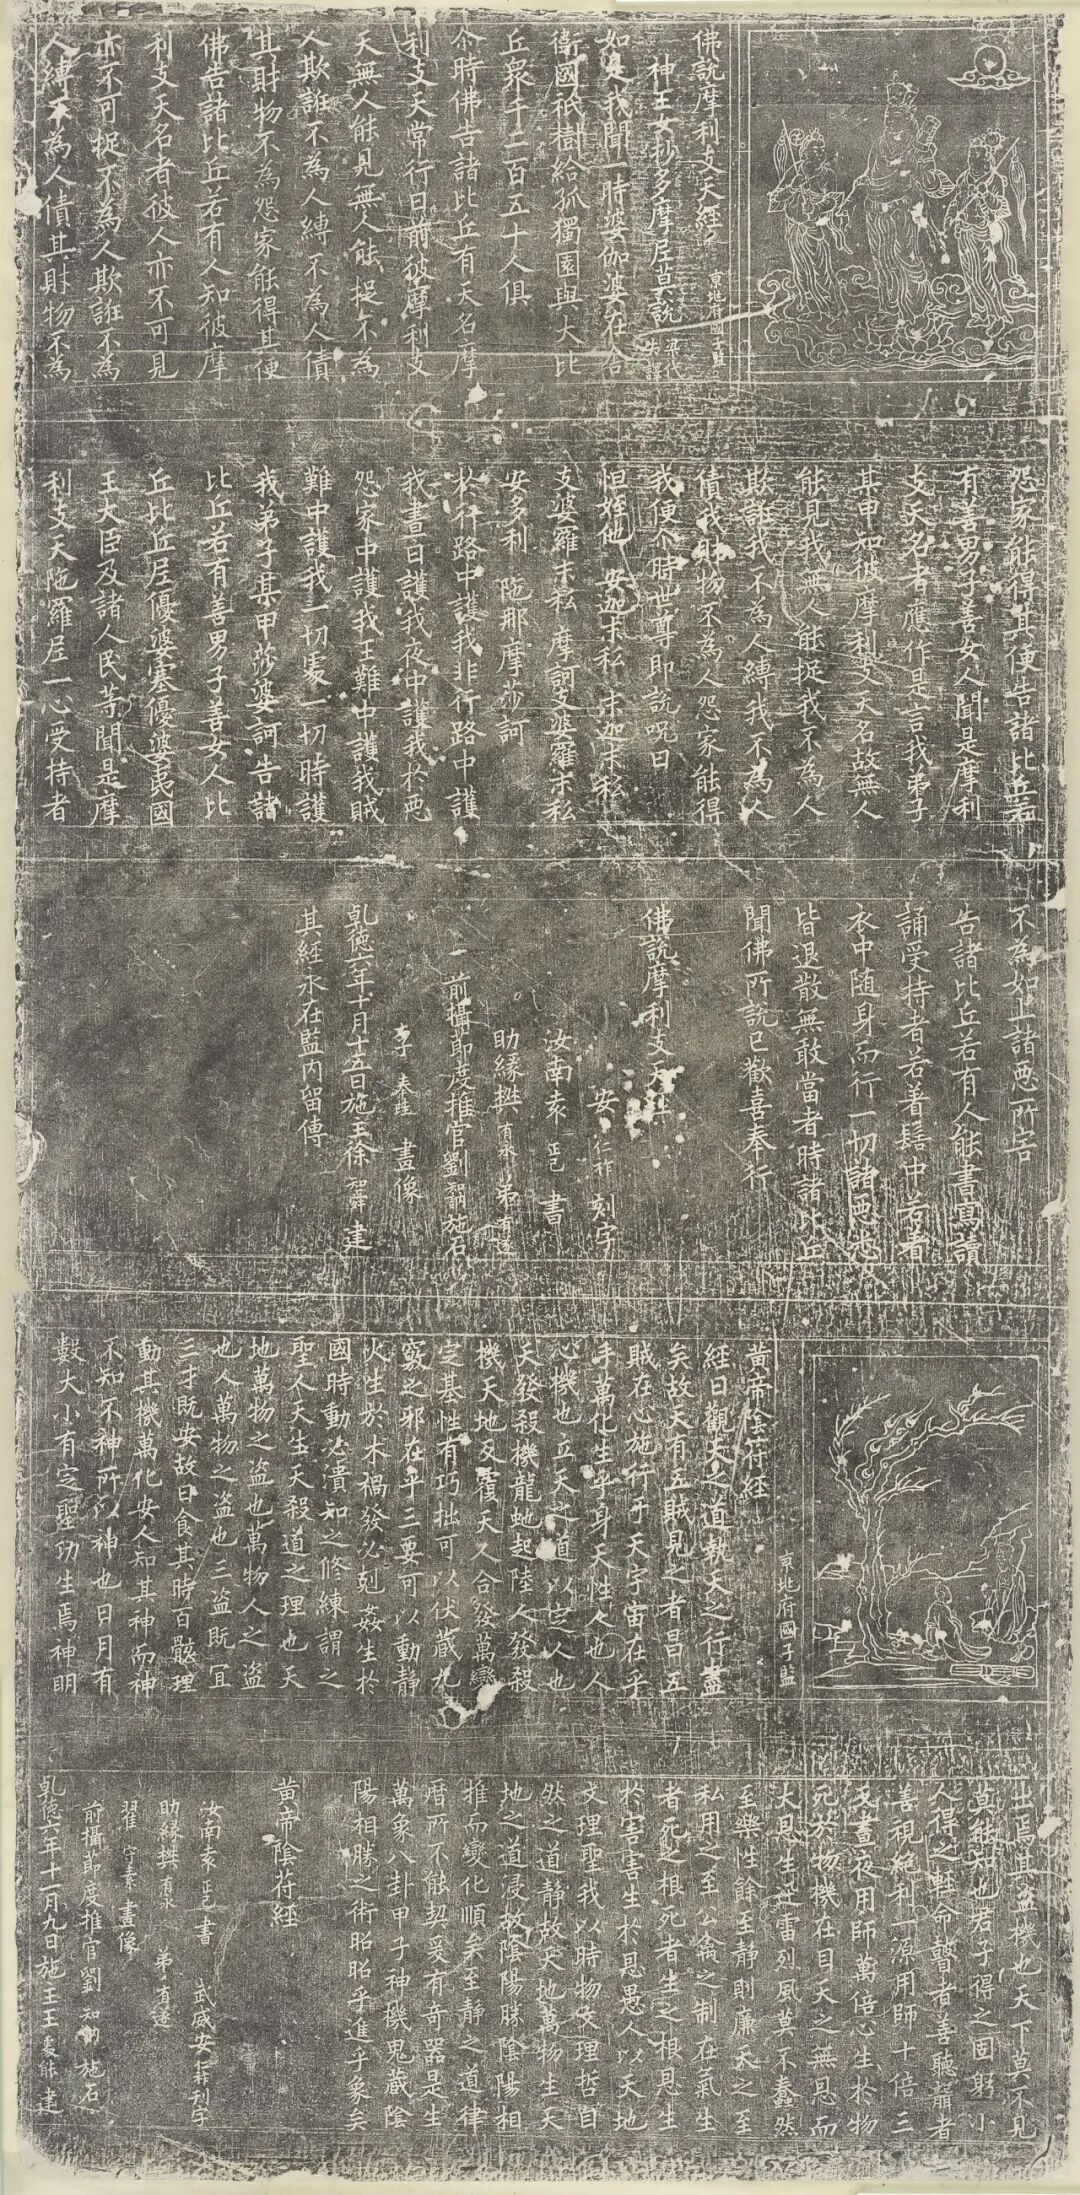 佛說摩利支天經
京兆府國子監
神王女抄多摩尼莫說 梁代失譯
如是我聞一時婆伽婆在舍
衛國祇樹給孤獨園與大比
丘眾千二百五十人俱
尒時佛告諸比丘有天名摩
利支天常行日前彼摩利支
天無人能見無人能捉不為
人欺誑不為人縛不為人債
其財物不為怨家能得其便
佛告諸比丘若有人知彼摩
利支天名者彼人亦不可見
亦不可捉不為人欺誑不為
人縛不為人債其財物不為
怨家能得其便告諸比丘若
有善男子善女人聞是摩利
支天名者應作是言我弟子
某甲知彼摩利支天名故無人
能見我無人能捉我不為人
欺誑我不為人縛我不為人
債我財物不為人怨家能得
我便尒時世尊即說呪曰
怛姪他 安迦末私 末迦末私
支婆羅末私 摩訶支婆羅末私
安多利 陁那摩莎訶
於行路中護我非行路中護
我晝日護我夜中護我於惡
怨家中護我王難中護我賊
難中護我一切處一切時護
我弟子某甲莎婆訶告諸
比丘若有善男子善女人比
丘比丘尼優婆塞優婆夷國
王大臣及諸人民等聞是摩
利支天陁羅尼一心受持者
不為如上諸惡所害
告諸比丘若有人能書寫讀
誦受持者若著髻中若著
衣中隨身而行一切諸惡悉
皆退散無敢當者時諸比丘
聞佛所說已歡喜奉行
佛說摩利支天經
安仁祚 刻字
汝南袁正己 書
助緣樊有永 弟有遂
前攝節度推官劉知訥施石
李奉珪 畫像
乹德六年十月十五日施主徐知舜建
其經永在監內留傳
京兆府國子監
黃帝陰符經
經曰觀天之道執天之行盡
矣故天有五賊見之者昌五
賊在心施行于天宇宙在乎
手萬化生乎身天性人也人
心機也立天之道以定人也
天發殺機龍虵起陸人發殺
機天地反覆天人合發萬變
定基性有巧拙可以伏藏九
竅之邪在乎三要可以動靜
火生於木禍發必剋姦生於
國時動必潰知之修練謂之
聖人天生天殺道之理也天
地萬物之盜也萬物人之盜
也人萬物之盜也三盜既宜
三才既安故曰食其時百骸理
動其機萬化安人知其神而神
不知不神所以神也日月有
數大小有定聖功生焉神明
出焉其盜機也天下莫不見
莫能知也君子得之固躬小
人得之輕命瞽者善聽聾者
善視絕利一源用師十倍三
反晝夜用師萬倍心生於物
死於物機在目天之無恩而
大恩生迅雷烈風莫不蠢然
至樂性餘至靜則廉天之至
私用之至公禽之制在氣生
者死之根死者生之根恩生
於害害生於恩愚人以天地
文理聖我以時物文理哲自
然之道靜故天地萬物生天
地之道浸故陰陽勝陰陽相
推而變化順矣至靜之道律
曆所不能契爰有奇器是生
萬象八卦甲子神機鬼藏陰
陽相勝之術昭昭乎進乎象矣
黃帝陰符經
汝南袁正己書 武威安仁祚刊字
助緣樊有永 弟有遂
翟守素畫像
前攝節度推官劉知訥施石
乹德六年十一月九日施主王處能建